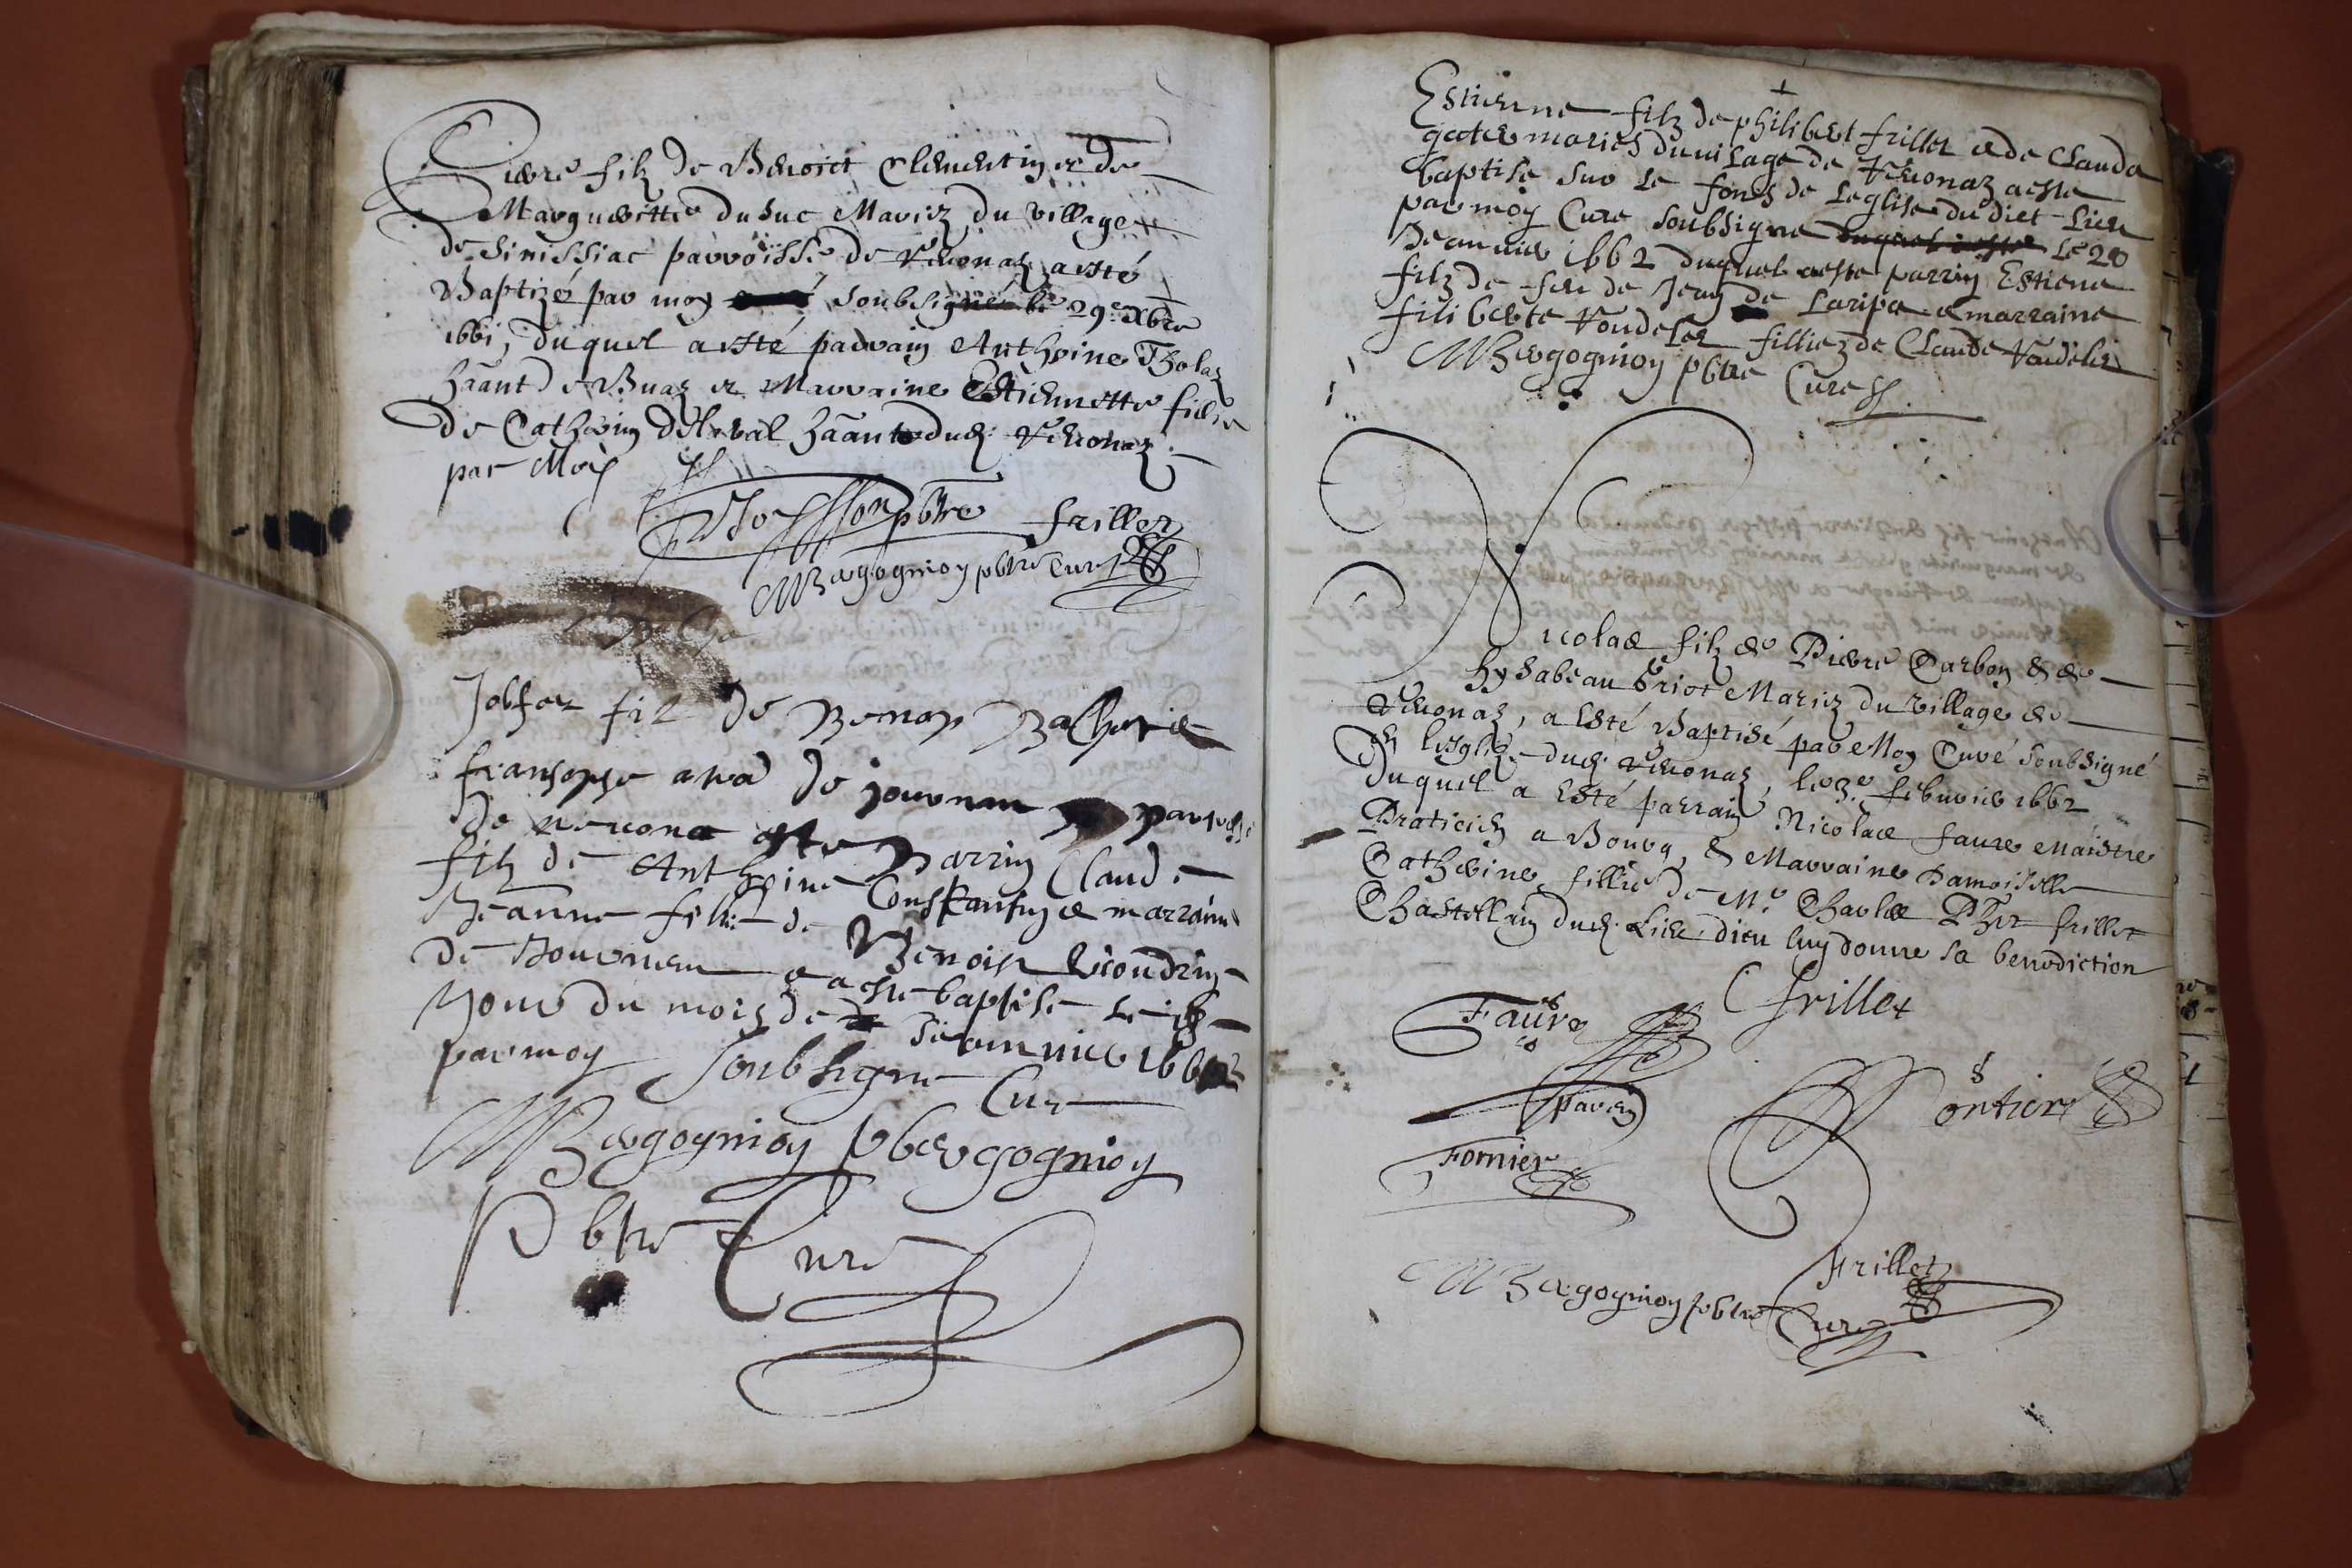 Pierre filz de Benoict Clementin et de
Margueritte du Suc Mariez du village
de Sinissiac parroisse de Veronaz a esté
Baptizé par moy soubsigné le 29e Xbre
1661, duquel a esté parrain Anthoine Tholaz
hãant de Buaz et Marraine Estiennette fille
de Catherin Delaval hãant dud. Veronaz
par Moy
pbtre frillet
MBergognioy pbtre Curé
Jobfor fiz de Benoy
fransoyse de jouvnan parrosse
de verona este parrin Claude
filz de Anthoine Constantin et marraine
Jeanne fille de Benoist Vioudrin
de Jouvnan a este baptise le
Jour du mois de Jeanvier 166
par moy soubsigne Cure
MBergognioy pbergognioy
Pbtre Curé
Estienne filz de philibert frillet et de Clauda
gater mariés du vilage de Veronaz a este
baptise sur le fonds de leglise du diet Lieu
par moy Cure soubsigne le 20
Jeanvier 1662 duquel a este parrin Estiene
filz de feu de Jean de Laripa et marraine
filiberte Vondeler filliez de Claude Vaudelir
MBergognioy pbtre Cure
Nicolas filz de Pierre Carbon & de
hysabeau Griot Mariez du village de
Veronaz, a Esté Baptisé par Moy Curé soubsigné
En lesglize dud. Veronaz, le 3e febvrier 1662
Duquel a Esté parrain Nicolas faure Maistre
Praticien a Bourg, & Marraine Damoiselle
Catherine fillie de Me Charles frillet
Chastellain dud. Lieu dieu luy donne sa benediction
Faure frillet
Pontier
Fornier
Frillet
MBergognioy pbtre Curé